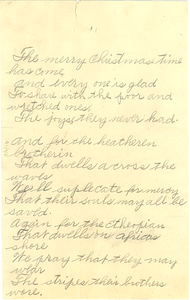 The merry Christmas time
has come
And every one is glad
To share with the poor and
wretched ones
The joys they never had.
And for the heatheren
bretherin
That dwells across the
waves
We'll suplicate for mercy
That their souls may all be
saved.
Again for the Etheopian
That dwells on Africas
shore
We pray that they may
wear
The stripes their brothers
wore.